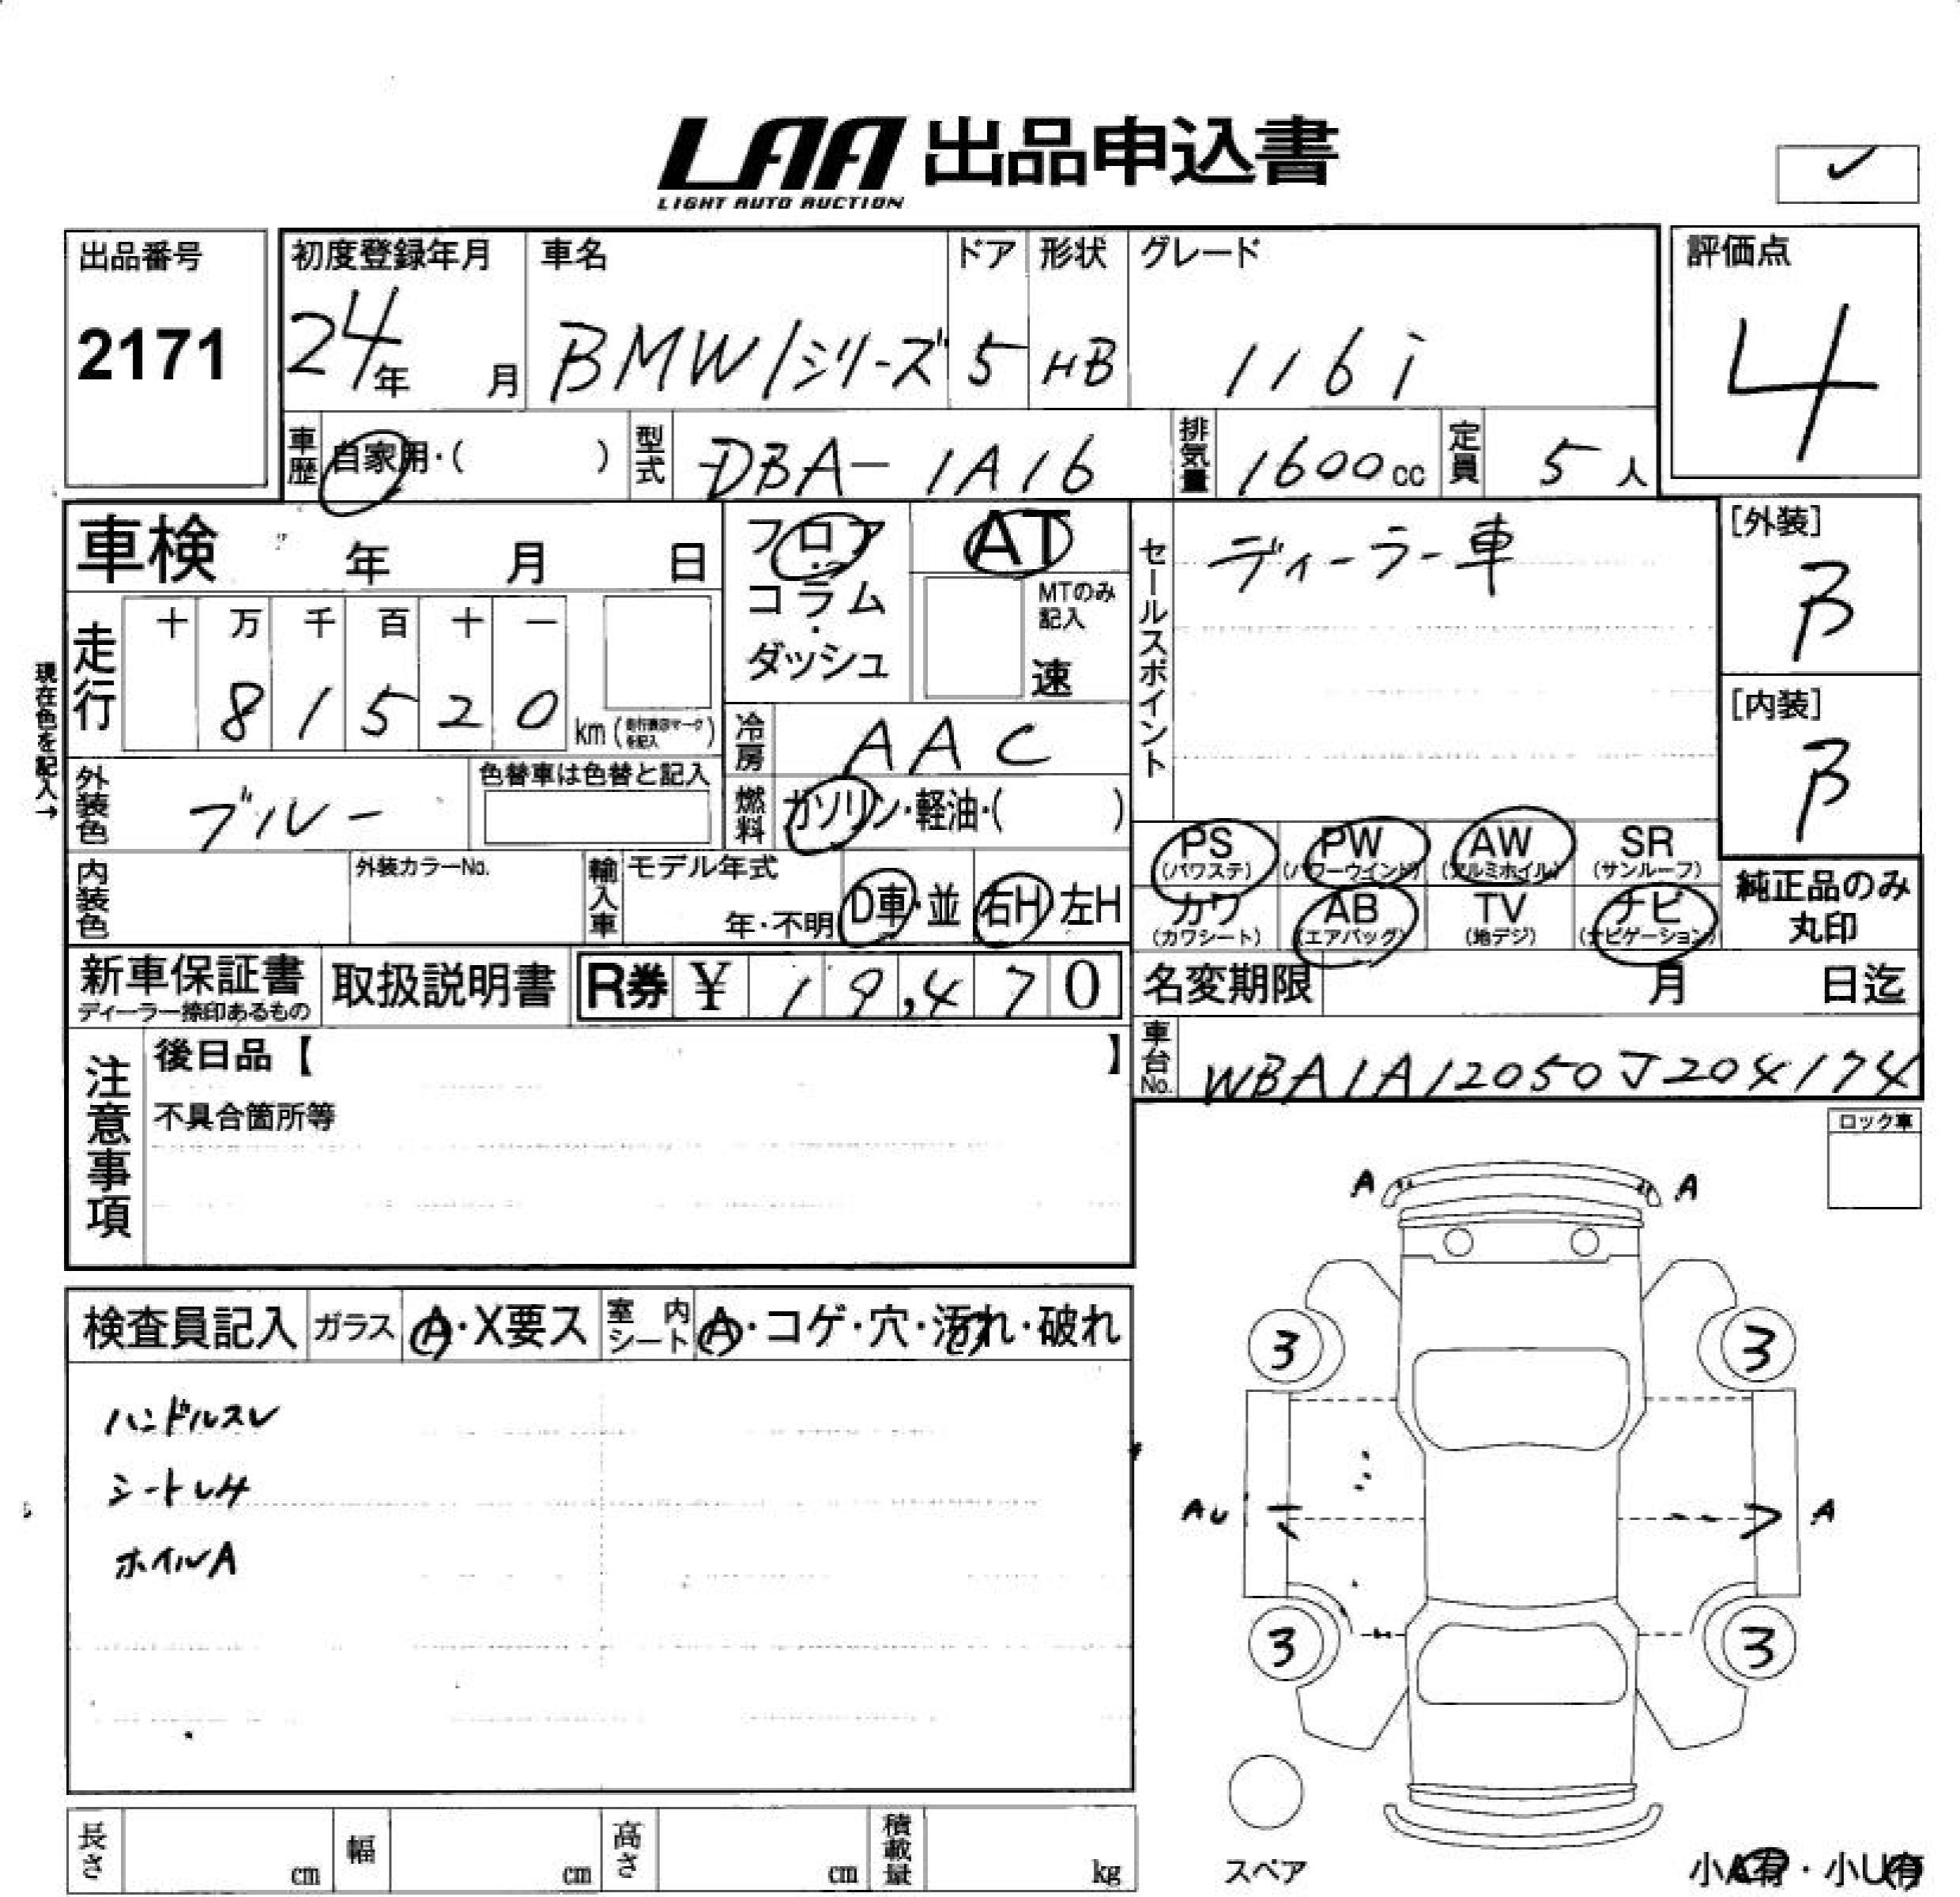 LAA 出品申込書
LIGHT AUTO AUCTION
出品番号
2171
初度登録年月 車名 ドア 形状 グレード
24年 月 BMW 1シリーズ 5 HB 116i
評価点
4
車歴 自家用・( ) 型式 DBA-1A16 排気量 1600cc 定員 5人
車検 年 月 日
フロア・コラム・ダッシュ
AT
MTのみ記入
速
セールスポイント
ディーラー車
[外装]
B
[内装]
B
走行 十 万 千 百 十 一
8 1 5 2 0 km
現在色を記入→
冷房 AAC
外装色 ブルー
色替車は色替と記入
燃料 ガソリン・軽油・( )
PS(パワステ) PW(パワーウインド) AW(アルミホイル) SR(サンルーフ)
カワ(カワシート) AB(エアバッグ) TV(地デジ) ナビ(ナビゲーション)
純正品のみ丸印
内装色
外装カラーNo.
輸入車 モデル年式 年・不明 D車・並 右H 左H
新車保証書
ディーラー捺印あるもの
取扱説明書
R券 ¥ 19,470
名変期限 月 日迄
車台No. WBA1A12050J204174
注意事項
後日品【 】
不具合箇所等
ロック車
A A
検査員記入 ガラス A・X要ス 室内シート A・コゲ・穴・汚れ・破れ
3 3
ハンドルスレ
シートレサ
AU A
ホイルA
3 3
長さ cm 幅 cm 高さ cm 積載量 kg
スペア
小A有・小U有